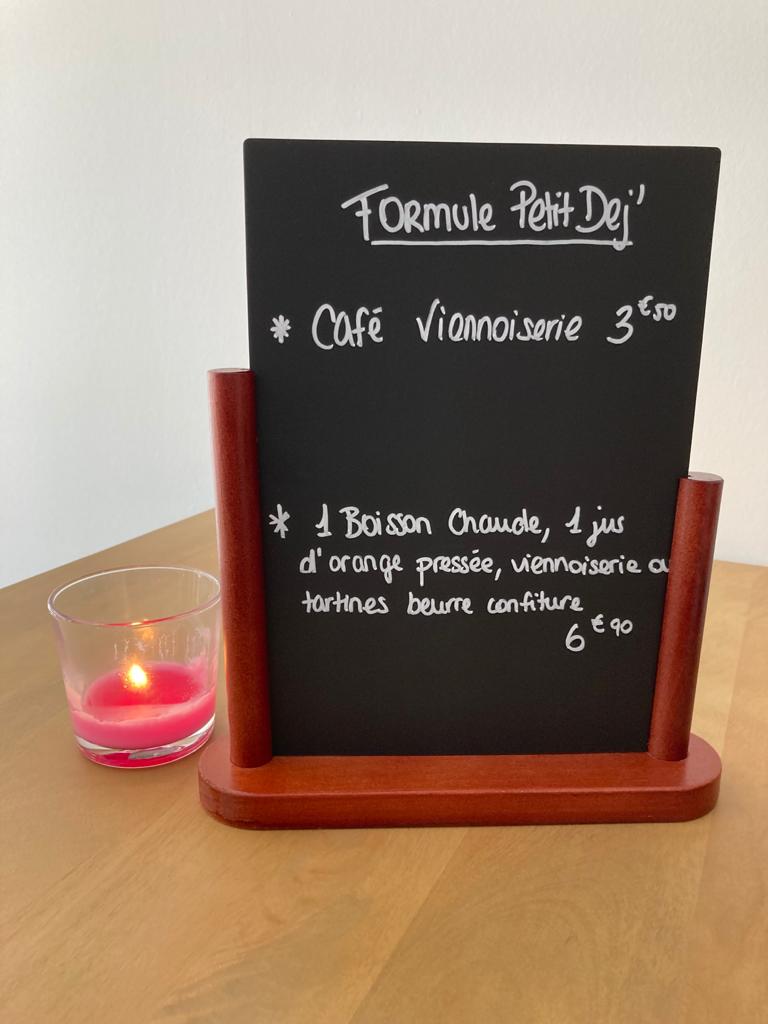 Formule Petit Dej'
* Café Viennoiserie 3€50
* 1 Boisson Chaude, 1 jus
d'orange pressée, viennoiserie ou
tartines beurre confiture
6€90